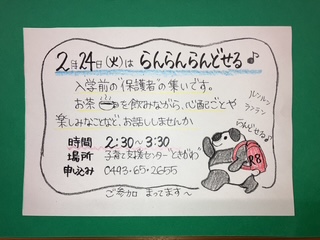 2月24日(火)は らんらんらんどせる♪
入学前の“保護者”の集いです。
お茶を飲みながら、心配ごとや
楽しみなことなど、お話ししませんか
ルンルン
ランラン
らんどせる♪
時間 2:30~3:30
場所 子育て支援センター“ときがわ”
申込み 0493-65-2655
R8
ご参加 まってます~